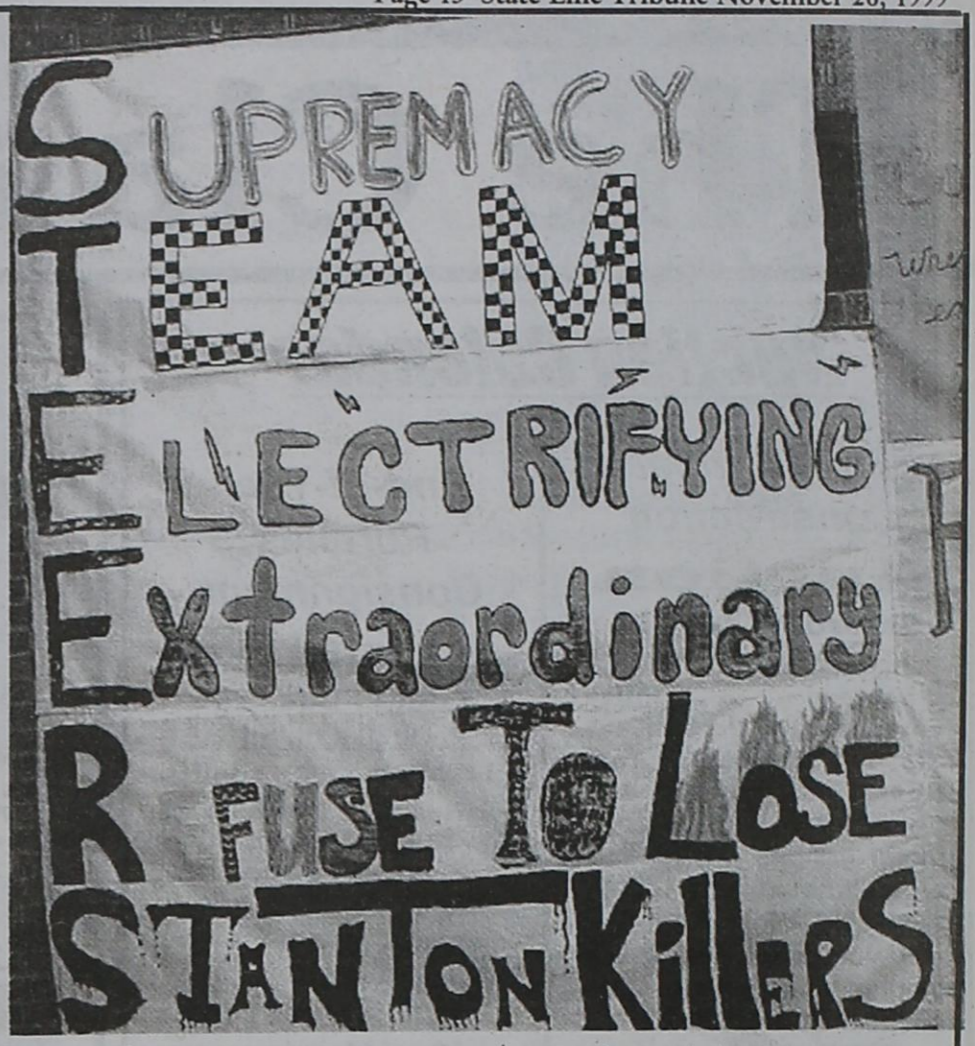 Page State Line Tribune November 1999
SUPREMACY
TEAM
ELECTRIFYING
Extraordinary
R FUSE TO LOSE
STANTON KillERS